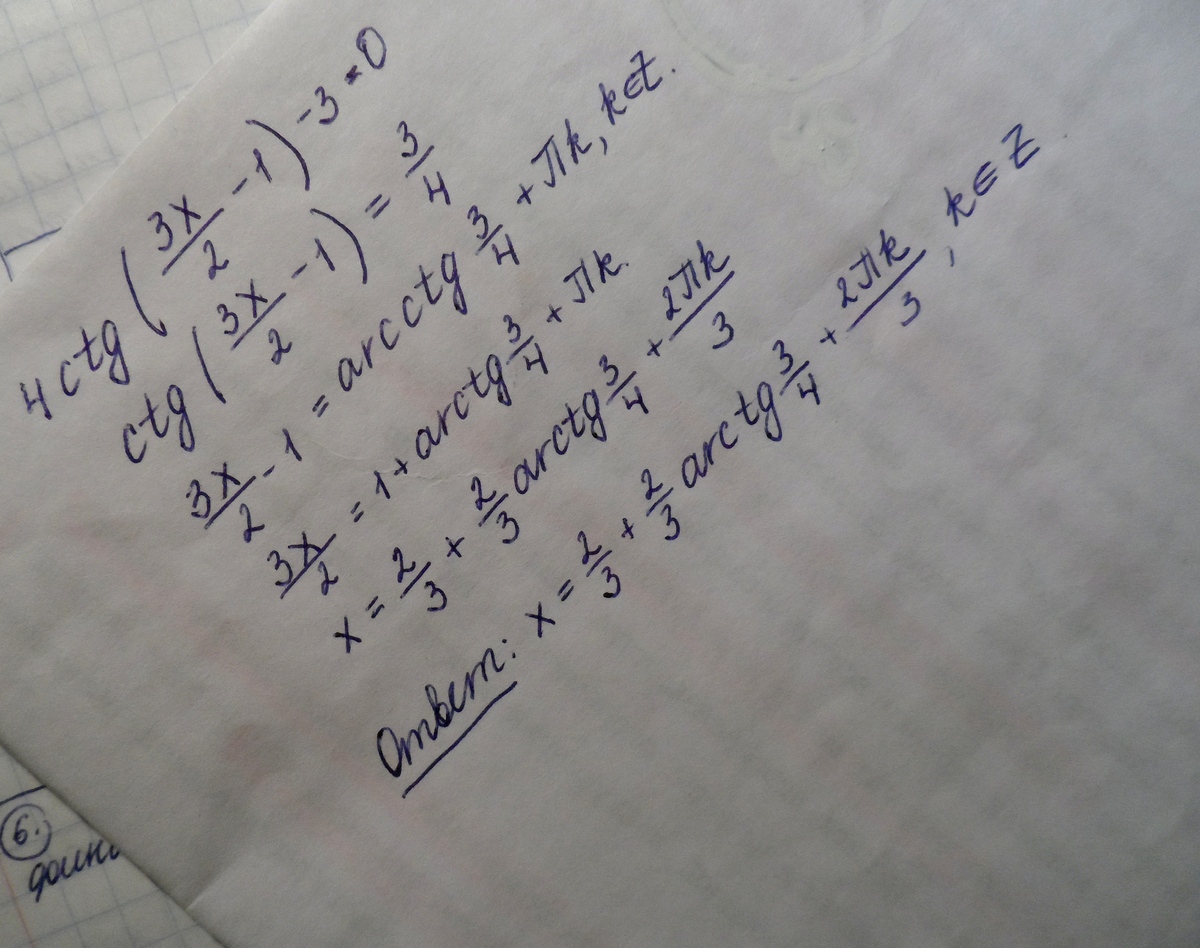 4 ctg (3x/2 - 1) - 3 = 0
ctg (3x/2 - 1) = 3/4
3x/2 - 1 = arcctg 3/4 + πk, k∈Z.
3x/2 = 1 + arctg 3/4 + πk.
x = 2/3 + 2/3 arctg 3/4 + 2πk/3
Ответ: x = 2/3 + 2/3 arctg 3/4 + 2πk/3, k∈Z
6.